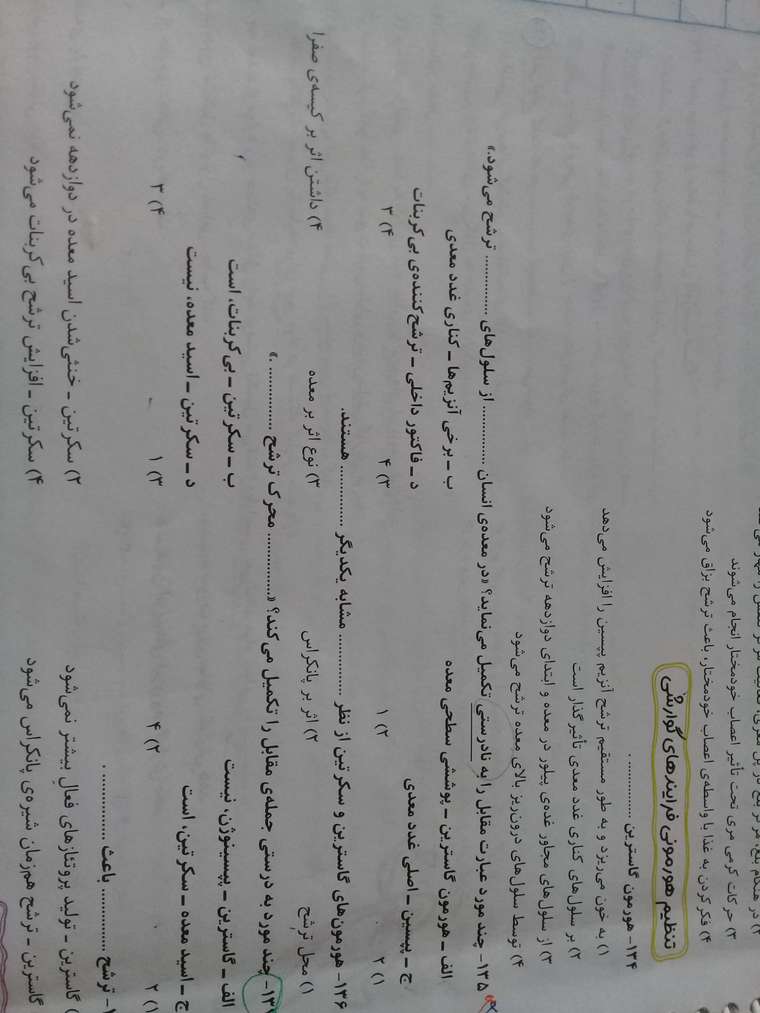 ۳) حرکات کرمی مری تحت تأثیر اعصاب خودمختار انجام می‌شوند
۴) فکر کردن به غذا با واسطه‌ی اعصاب خودمختار، باعث ترشح بزاق می‌شود
تنظیم هورمونی فرایندهای گوارشی
۱۳۴- هورمون گاسترین ............... .
۱) به خون می‌ریزد و به طور مستقیم ترشح آنزیم پپسین را افزایش می‌دهد
۲) بر سلول‌های کناری غدد معدی تأثیرگذار است
۳) از سلول‌های مجاور غده‌ی پیلور در معده و ابتدای دوازدهه ترشح می‌شود
۴) توسط سلول‌های درون‌ریز بالای معده ترشح می‌شود
۱۳۵- چند مورد عبارت مقابل را به نادرستی تکمیل می‌نماید؟ «در معده‌ی انسان ............... از سلول‌های ............... ترشح می‌شود.»
الف - هورمون گاسترین - پوششی سطحی معده ب - برخی آنزیم‌ها - کناری غدد معدی
ج - پپسین - اصلی غدد معدی د - فاکتور داخلی - ترشح‌کننده‌ی بی‌کربنات
۱) ۲ ۲) ۱ ۳) ۴ ۴) ۳
۱۳۶- هورمون‌های گاسترین و سکرتین از نظر ............... مشابه یکدیگر ............... هستند.
۱) محل ترشح ۲) اثر بر پانکراس ۳) نوع اثر بر معده ۴) داشتن اثر بر کیسه‌ی صفرا
چند مورد به درستی جمله‌ی مقابل را تکمیل می‌کند؟ «............... محرک ترشح ............... .»
الف - گاسترین - پپسینوژن، نیست ب - سکرتین - بی‌کربنات، است
ج - اسید معده - سکرتین، است د - سکرتین - اسید معده، نیست
۱) ۲ ۲) ۴ ۳) ۱ ۴) ۳
ترشح ............... باعث ............... .
گاسترین - تولید پروتئازهای فعال بیشتر نمی‌شود ۲) سکرتین - خنثی‌شدن اسید معده در دوازدهه نمی‌شود
گاسترین - ترشح هم‌زمان شیره‌ی پانکراس می‌شود ۴) سکرتین - افزایش ترشح بی‌کربنات می‌شود